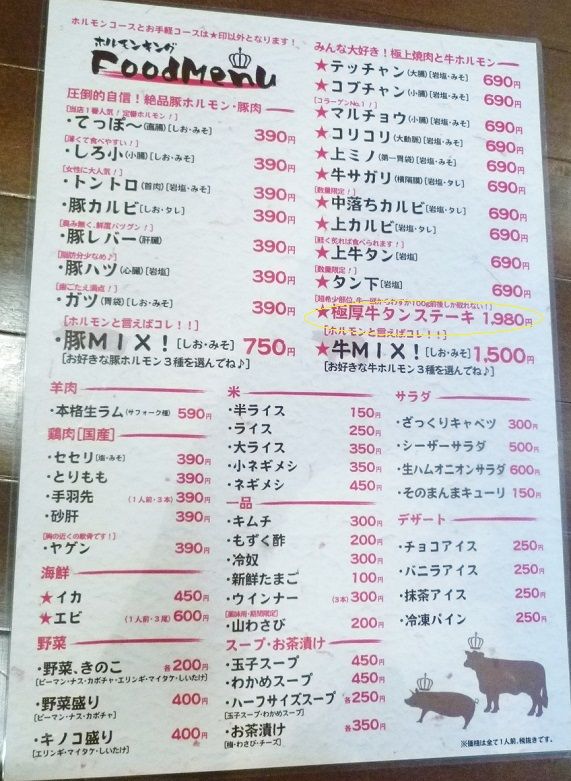 ホルモンコースとお手軽コースは★印以外となります！
ホルモンキング
FoodMenu
圧倒的自信！絶品豚ホルモン・豚肉
[当店1番人気！定番ホルモン！]
・てっぽ〜(直腸)[しお・みそ] 390円
[薄くて食べやすい！]
・しろ小(小腸)[しお・みそ] 390円
[女性に大人気！]
・トントロ(首肉)[岩塩・みそ] 390円
・豚カルビ[しお・タレ] 390円
[臭み無く、鮮度バツグン！]
・豚レバー(肝臓) 390円
[脂肪分少なめ♪]
・豚ハツ(心臓)[岩塩] 390円
[歯ごたえ満点！]
・ガツ(胃袋)[しお・みそ] 390円
[ホルモンと言えばコレ！！]
・豚MIX！[しお・みそ] 750円
[お好きな豚ホルモン3種を選んでね♪]
みんな大好き！極上焼肉と牛ホルモン
★テッチャン(大腸)[岩塩・みそ] 690円
★コブチャン(小腸)[岩塩・みそ] 690円
[コラーゲンNo.1！]
★マルチョウ(小腸)[岩塩・みそ] 690円
★コリコリ(大動脈)[岩塩・みそ] 690円
★上ミノ(第一胃袋)[岩塩・みそ] 690円
★牛サガリ(横隔膜)[岩塩・タレ] 690円
[数量限定！]
★中落ちカルビ[岩塩・タレ] 690円
★上カルビ[岩塩・タレ] 690円
[軽く炙れば食べられます！]
★上牛タン[岩塩] 690円
[数量限定！]
★タン下[岩塩] 690円
[超希少部位、牛一頭からわずか100g前後しか取れない！]
★極厚牛タンステーキ 1,980円
[ホルモンと言えばコレ！！]
★牛MIX！[しお・みそ] 1,500円
[お好きな牛ホルモン3種を選んでね♪]
羊肉
・本格生ラム(サフォーク種) 590円
鶏肉[国産]
・セセリ[塩・みそ] 390円
・とりもも 390円
・手羽先 (1人前・3本) 390円
・砂肝 390円
[胸の近くの軟骨です！]
・ヤゲン 390円
海鮮
★イカ 450円
★エビ (1人前・3尾) 600円
野菜
・野菜、きのこ 各200円
[ピーマン・ナス・カボチャ・エリンギ・マイタケ・しいたけ]
・野菜盛り 400円
[ピーマン・ナス・カボチャ]
・キノコ盛り 400円
[エリンギ・マイタケ・しいたけ]
米
・半ライス 150円
・ライス 250円
・大ライス 350円
・小ネギメシ 350円
・ネギメシ 450円
一品
・キムチ 300円
・もずく酢 200円
・冷奴 300円
・新鮮たまご 100円
・ウインナー (3本) 300円
[薬味用・期間限定]
・山わさび 200円
スープ・お茶漬け
・玉子スープ 450円
・わかめスープ 450円
・ハーフサイズスープ 各250円
[玉子スープ・わかめスープ]
・お茶漬け 各350円
[梅・わさび・チーズ]
サラダ
・ざっくりキャベツ 300円
・シーザーサラダ 500円
・生ハムオニオンサラダ 600円
・そのまんまキューリ 150円
デザート
・チョコアイス 250円
・バニラアイス 250円
・抹茶アイス 250円
・冷凍パイン 250円
※価格は全て1人前、税抜きです。